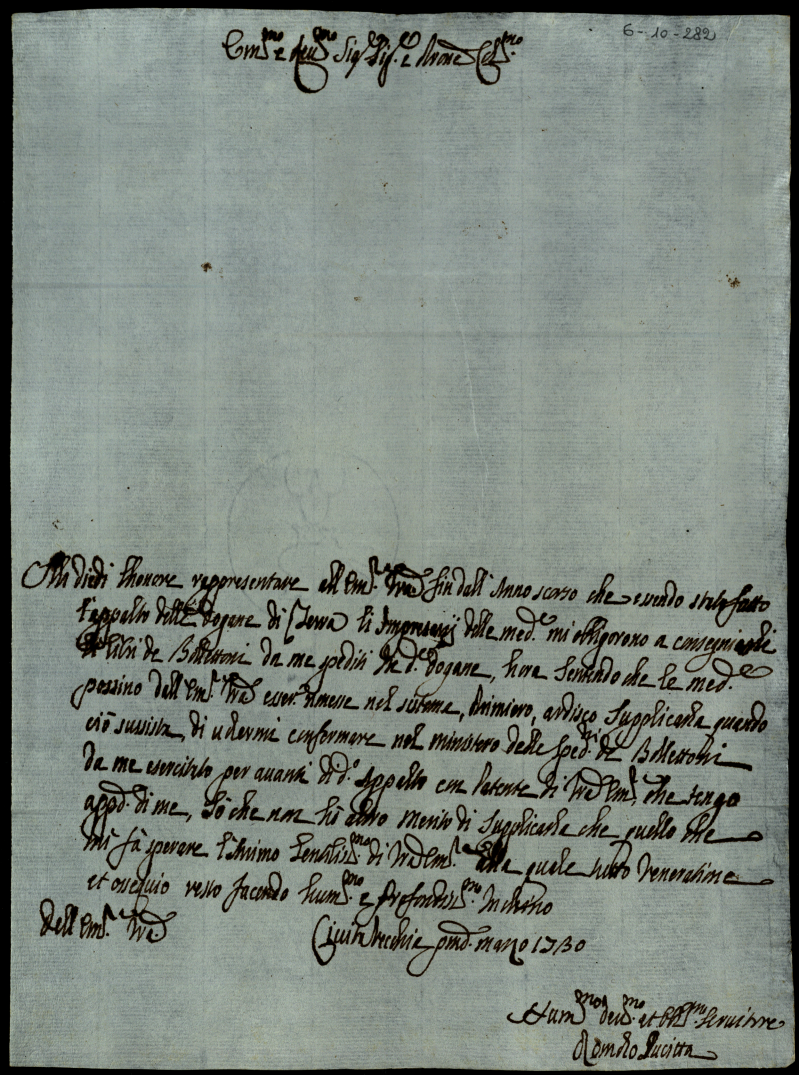 6-10-282
Em.mo e Rev.mo Sig.r Sig.r e Prone Col.mo
Mi diedi l'honore rappresentare all'Em.za Vra sin dall'Anno scorso che essendo stato fatto
l'appalto delle Dogane di Terra li Impresarij delle med.e mi obligorono a consegniarli
li libri de Bollettoni da me spediti in d.e Dogane, hora sentendo che le med.e
possino dall'Em.za Vra esser rimesse nel sistema Primiero, ardisco supplicarla quando
ciò sussista, di volermi confermare nel ministero delle sped.ni de Bollettoni
da me esercitato per avanti di d.o Appalto con Patente di Vra Em.za che tengo
app.o di me, Sò che non hò altro merito di supplicarla che quello che
mi fà sperare l'animo di Vra Em.za alla quale tutto Veneratione
et ossequio resto facendo hum.mo e profondis.mo Inchino
Dell'Em.za Vra
Civita Vecchia p.mo marzo 1730
Hum.mo dev.mo et obl.mo Servitore
Romolo Pucitta